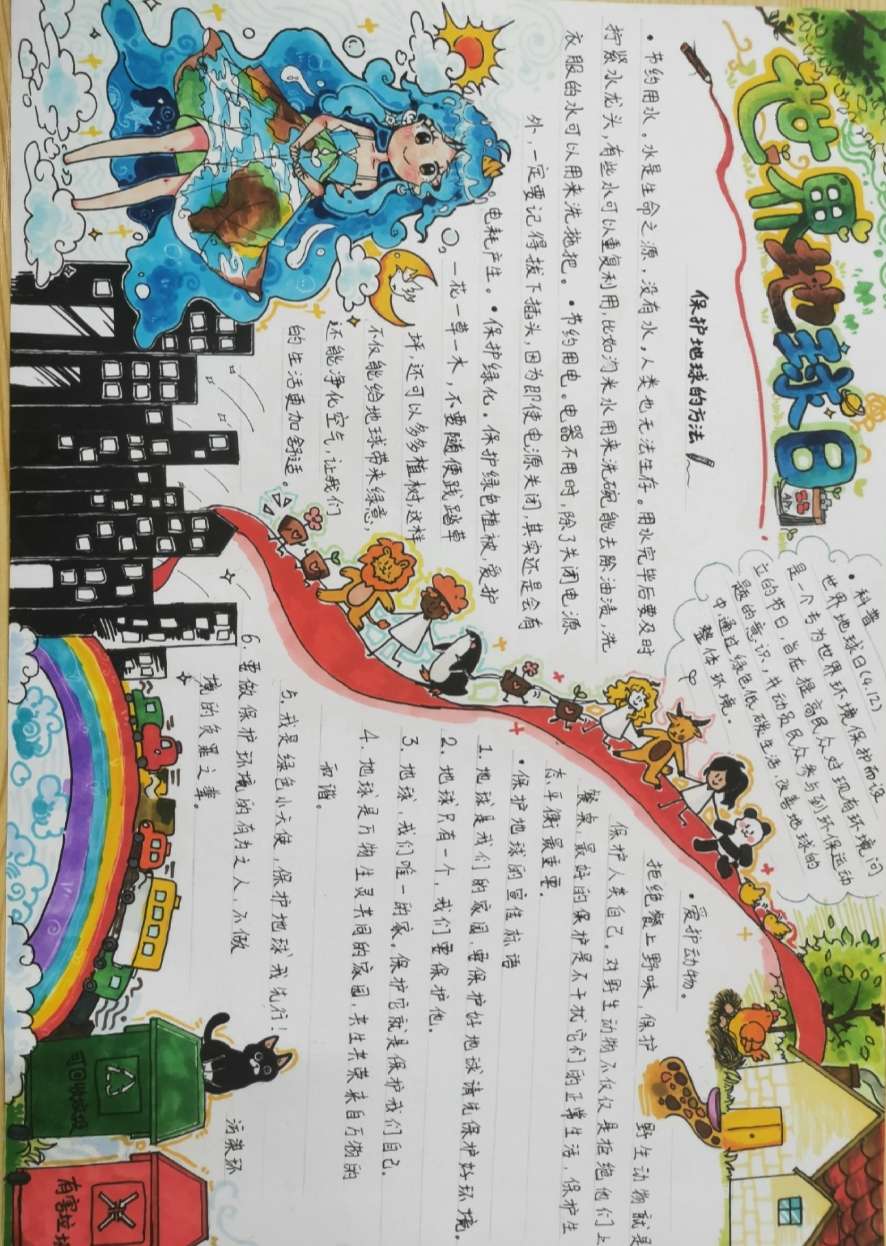 世界地球日
•科普
世界地球日(4.12)
是一个专为世界环境保护而设
立的节日,旨在提高民众对现有环境问
题的意识,并动员民众参与到环保运动
中通过绿色低碳生活,改善地球的
整体环境。
保护地球的方法
•节约用水。水是生命之源,没有水,人类也无法生存。用水完毕后要及时
拧紧水龙头,有些水可以重复利用,比如淘米水用来洗碗能去除油渍,洗
衣服的水可以用来洗拖把。•节约用电。电器不用时,除了关闭电源
外,一定要记得拔下插头,因为即使电源关闭,其实还是会有
电耗产生。•保护绿化。保护绿色植被,爱护
一花一草一木,不要随便践踏草
坪,还可以多多植树,这样
不仅能给地球带来绿意,
还能净化空气,让我们
的生活更加舒适。
•爱护动物。
拒绝餐上野味,保护野生动物就是
保护人类自己。对野生动物不仅仅是拒绝他们上
餐桌,最好的保护是不干扰它们的正常生活,保护生
态平衡最重要.
•保护地球的宣传标语
1.地球是我们的家园,要保护好地球请先保护好环境.
2.地球只有一个,我们要保护他.
3.地球,我们唯一的家。保护它就是保护我们自己.
4.地球是万物生灵共同的家园,共生共荣来自万物的
和谐。
5.我是绿色小天使,保护地球我先行!
6.要做保护环境的有为之人,不做
污染环
境的负罪之辈。
可回收垃圾
有害垃圾